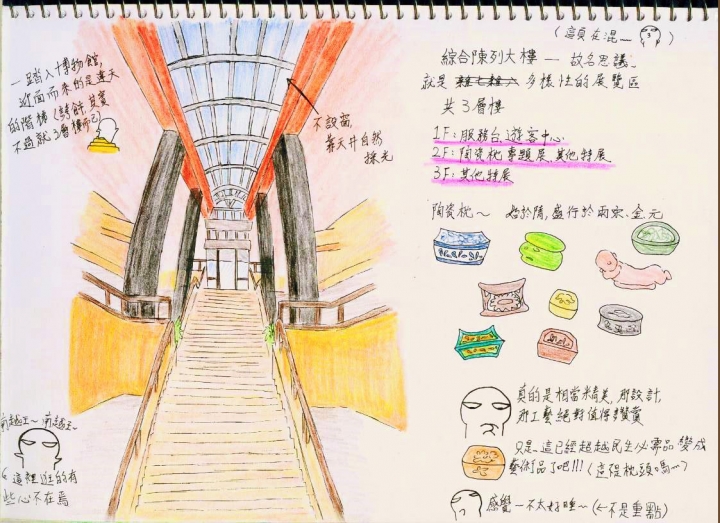 一踏入博物館,
迎面而來的是連天
的階梯(誇飾,其實
不過就3層樓而已
不設窗,
靠天井自然
採光
南越王~南越王~
這裡逛的有
些心不在焉
(這頁在混...)
綜合陳列大樓 — 故名思議、
就是 多樣性的展覽區
共3層樓
1F:服務台、遊客中心
2F:陶瓷枕專題展、其他特展
3F:其他特展
陶瓷枕~ 始於隋,盛行於兩宋、金元
真的是相當精美,那設計,
那工藝絕對值得讚賞
只是、這已經超越民生必需品變成
藝術品了吧!!!(這是枕頭嗎~)
感覺一不太好睡~(←不是重點)